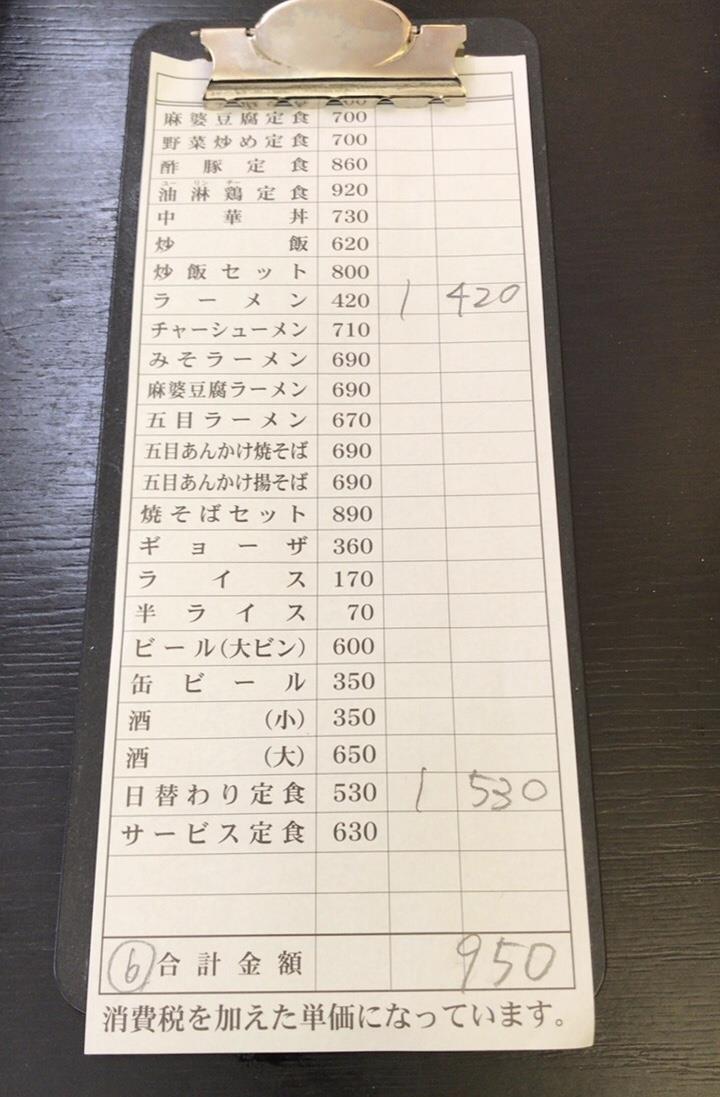 麻婆豆腐定食 700
野菜炒め定食 700
酢豚定食 860
油淋鶏定食 920
中華丼 730
炒飯 620
炒飯セット 800
ラーメン 420 1 420
チャーシューメン 710
みそラーメン 690
麻婆豆腐ラーメン 690
五目ラーメン 670
五目あんかけ焼そば 690
五目あんかけ揚そば 690
焼そばセット 890
ギョーザ 360
ライス 170
半ライス 70
ビール(大ビン) 600
缶ビール 350
酒(小) 350
酒(大) 650
日替わり定食 530 1 530
サービス定食 630
6 合計金額 950
消費税を加えた単価になっています。